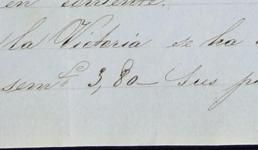 en corriente.
la Victoria se ha
sem^l 3,80— Sus p